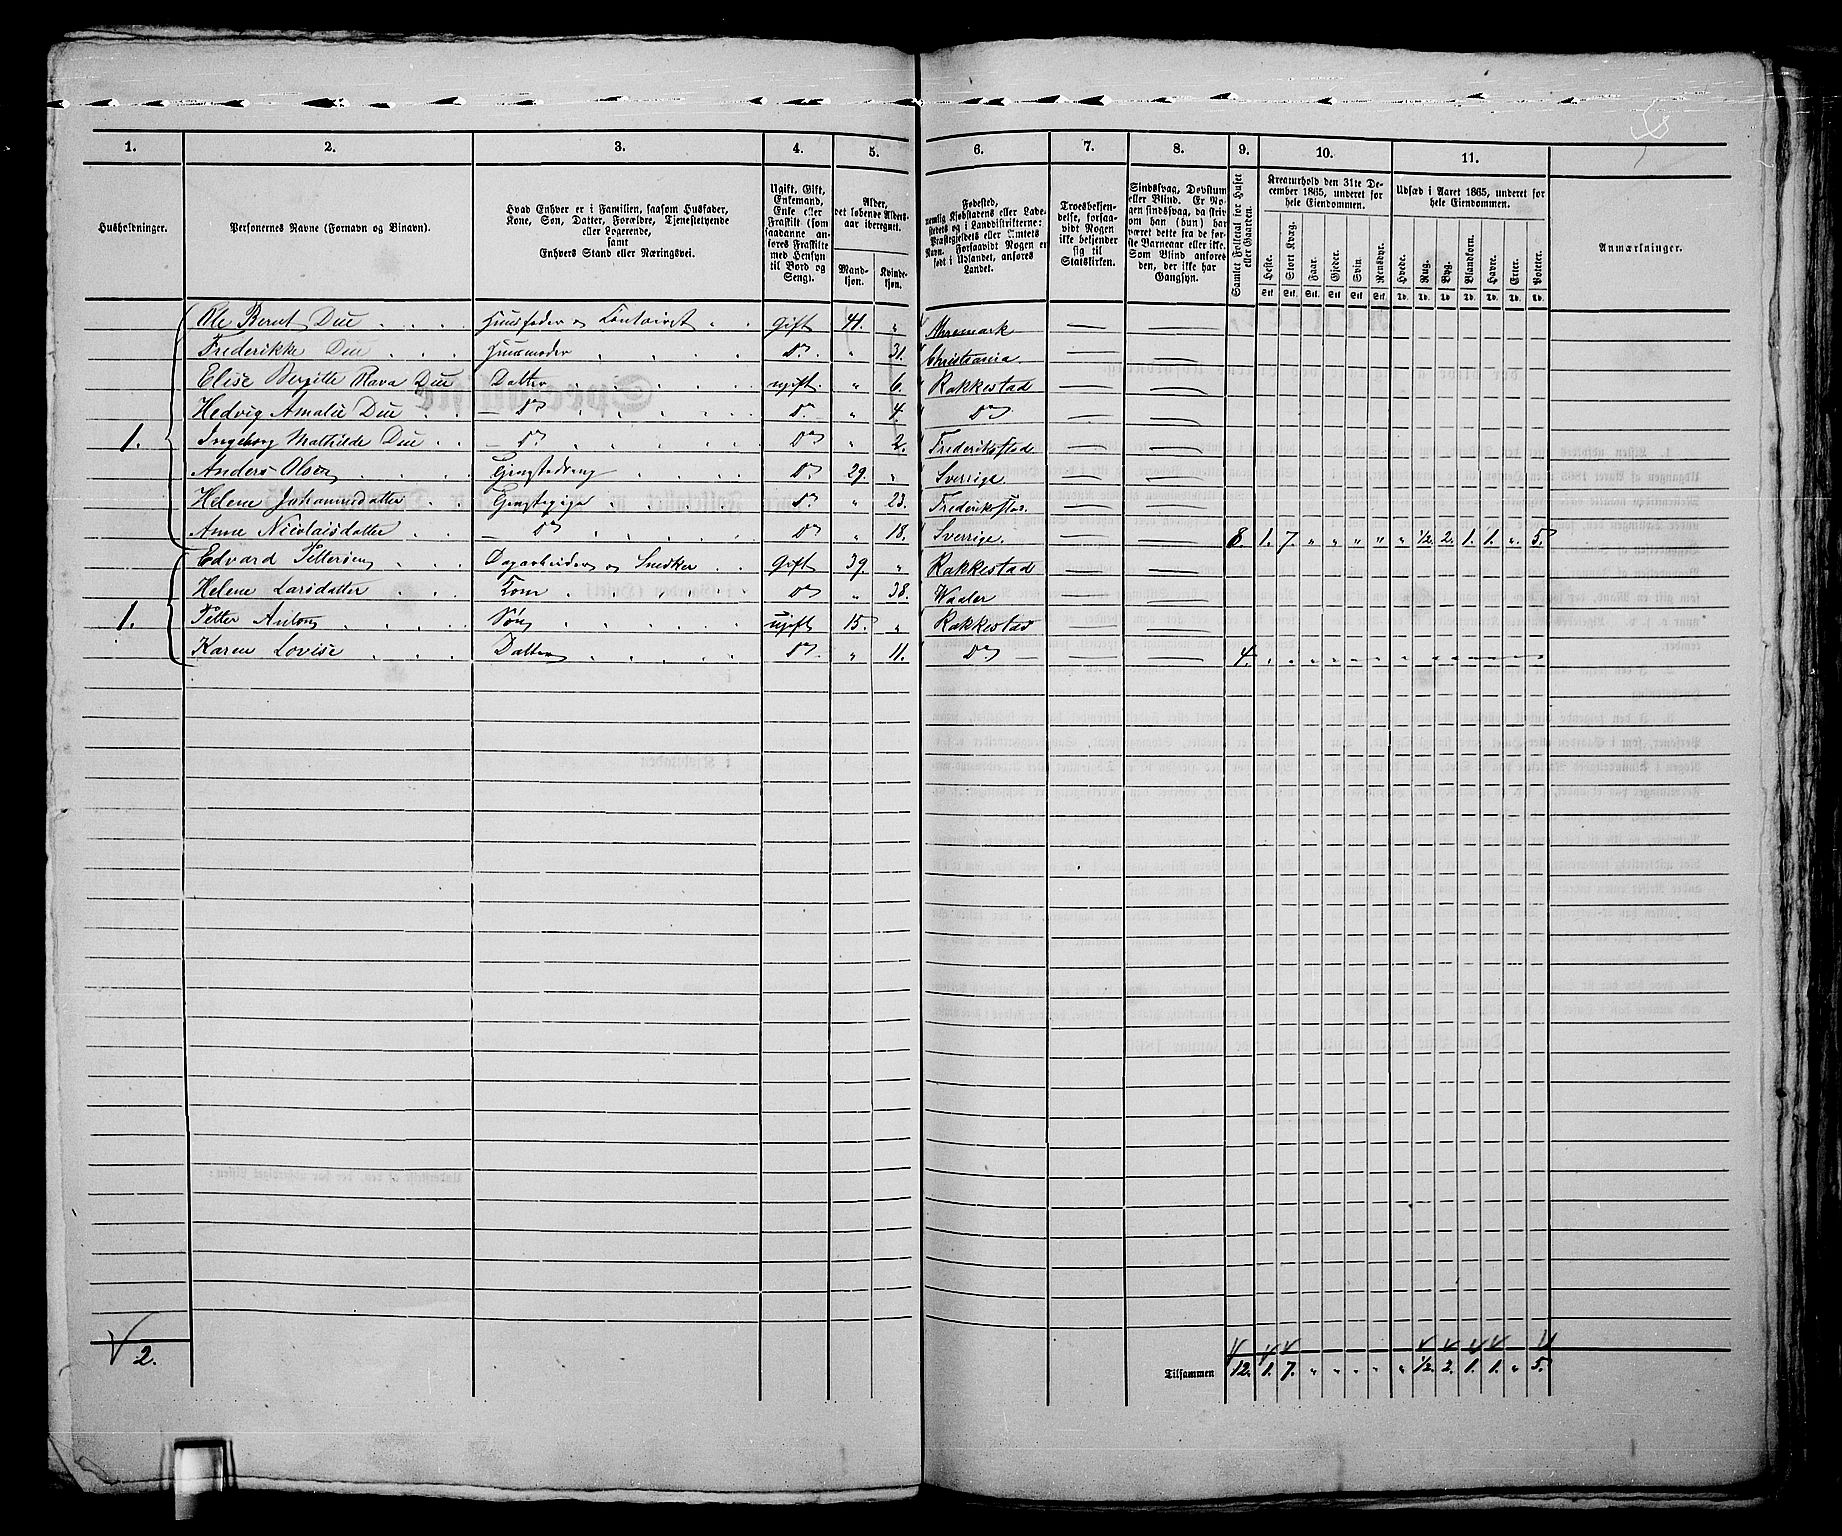 1. 2. 3. 4. 5. 6. 7. 8. 9. 10. 11.
Husholdninger.
Personernes Navne (Fornavn og Tilnavn).
Hvad Enhver er i Familien, saasom Husfader, Kone, Søn, Datter, Forældre, Tjenestetyende eller Logerende, samt Enhvers Stand eller Næringsvei.
Ugift, Gift, Enkemand, Enke eller Fraskilt (som saadanne anføres Fraskilte med Hensyn til Bord og Seng).
Alder, det løbende Alders-aar iberegnet.
Mandkjøn. Kvindekjøn.
Fødested, nemlig Kjøbstadens eller Ladestedets og i Landdistrikterne: Præstegjeldets eller Amtets Navn. Forsaavidt Nogen er født i Udlandet, anføres Landet.
Troesbekjendelse, forsaavidt Nogen ikke bekjender sig til Statskirken.
Sindssvag, Døvstum eller Blind. Er Nogen sindssvag, da skriv om han (hun) har været dette fra de første Barneaar eller ikke. Som Blind anføres den, der ikke har Gangsyn.
Samlet Folketal for Huset eller Gaarden.
Kreaturhold den 31te December 1865, underet for hele Eiendommen.
Heste. Stort Kvæg. Faar. Gjeder. Svin. Rensdyr.
Stk. Stk. Stk. Stk. Stk. Stk.
Udsæd i Aaret 1865, underet for hele Eiendommen.
Hvede. Rug. Byg. Blandkorn. Havre. Erter. Poteter.
Td. Td. Td. Td. Td. Td. Td.
Anmærkninger.
Ole Bernt Due Huusfader og Contoirist Gift 41. „ Aremark
Frederikke Due Huusmoder Do. „ 31. Christiania
Elise Birgitte Rava Due Datter ugift „ 6. Rakkestad
Hedvig Amalie Due Do Do. „ 4. Do
1. Ingeborg Mathilde Due Do Do „ 2. Frederikstad
Anders Olsen Tjenestedreng Do 29. „ Sverrige
Helene Johannesdatter Tjenestepige Do. „ 23. Frederikstad
Anne Nicolaisdatter Do Do „ 18. Sverrige 8. 1. 7. „ „ „ „ „ ½. 2. 1. 1. „ 5.
Edvard Pettersen Dagarbeider og Snedker Gift 39. „ Rakkestad
Helene Larsdatter Kone Do „ 38. Waaler
1. Petter Anton Søn ugift 15. „ Rakkestad
Karen Lovise Datter Do. „ 11. Do 4 „ „ „ „ „ „ „ „ „ „ „ „ „
2.
Tilsammen 12. 1. 7. „ „ „ „ „ ½. 2. 1. 1. „ 5.